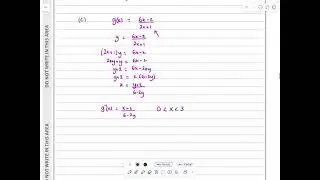 (c) g(x) = 6x-2 / 2x+1
y = 6x-2 / 2x+1
(2x+1)y = 6x-2
2xy+y = 6x-2
y+2 = 6x-2xy
y+2 = x(6-2y)
x = y+2 / 6-2y
g⁻¹(x) = x+2 / 6-2x 0 < x < 3
DO NOT WRITE IN THIS AREA
DO NOT WRITE IN THIS AREA